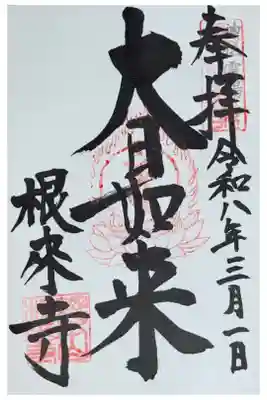 奉拝
令和八年三月一日
大日如来
根來寺